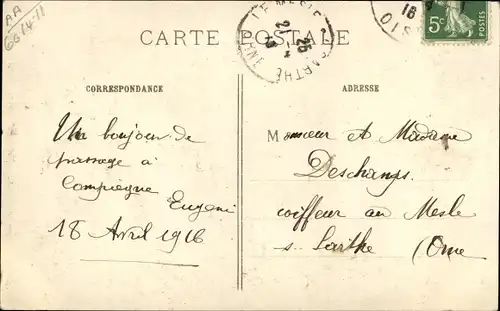 AA
6614-11
CARTE POSTALE
LE MESLE
SARTHE
ORNE
5c
CORRESPONDANCE
ADRESSE
Un bonjour de
passage à
Compiegne
Eugene
18 Avril 1916
Monsieur et Madame
Deschamps
coiffeur au Mesle
s. Sarthe (Orne